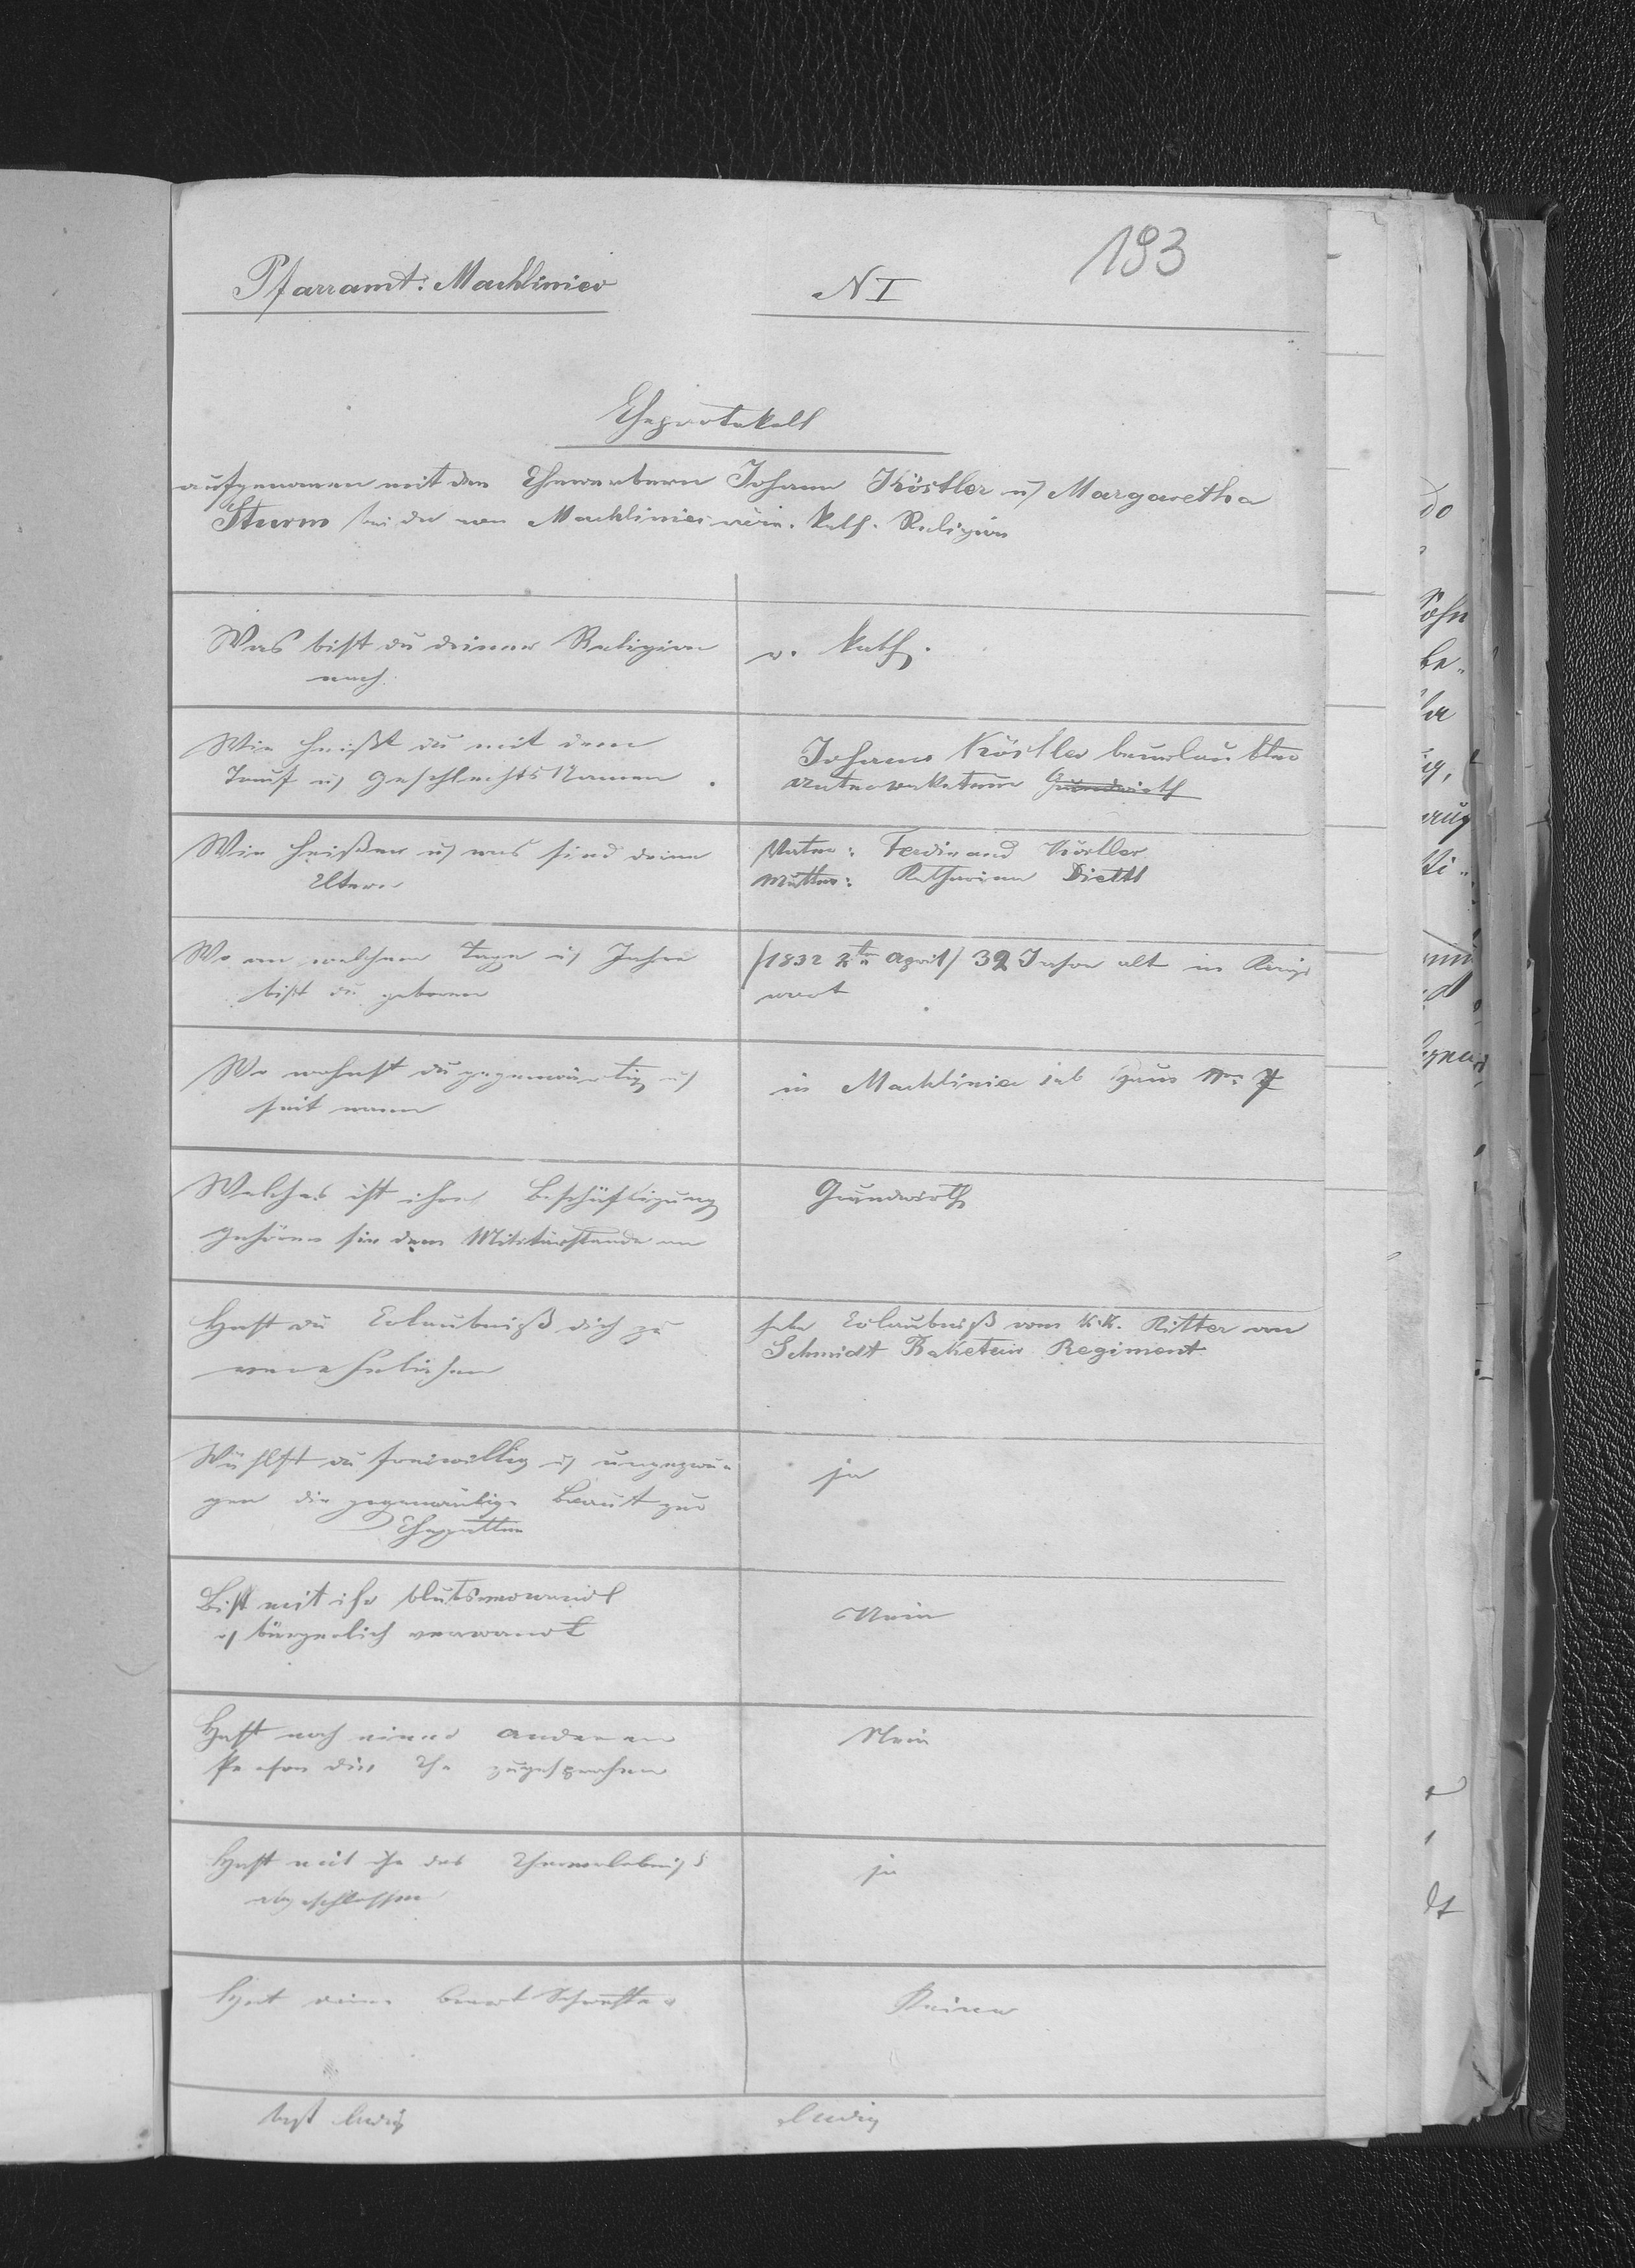 193
Pfarramt: Machliniec
N I
Eheprotokoll
aufgenomen mit den Ehewerbern Johann Köstler u Margaretha
Sturm beide von Machliniec röm. kath. Religion
Was bist du deiner Religion
nach
r. kath.
Wie heißt du mit dem
Tauf u Geschlechts Namen
Johann Köstler beurlaubter
Gundwirth
Wie heißen u was sind deine
Eltern
Vater: Ferdinand Köstler
Mutter: Katharina Dietll
Wo an welchem Tage u Jahre
bist du geboren
(1832 2ten April) 32 Jahre alt in
Wo wohnst du gegenwärtig u
seit wann
in Machliniec sub Haus Nr: 7
Welches ist ihre Beschäftigung
gehören sie dem Militärstande an
Grundwirth
Hast du Erlaubniß dich zu
verehelichen
habe Erlaubniß vom K.K. Ritter von
Schmidt Raketeur Regiment
Wählst du freiwillig u ungezwun
gen die gegenwärtige Braut zur
Ehegattin
ja
Bist mit ihr blutsverwandt
o bürgerlich verwandt
Nein
Hast noch einer anderen
Person die Ehe zugesprochen
Nein
Hast mit ihr das
abgeschlossen
ja
Hat deine Braut Schwester
Keine
bist ledig
ledig
do
Sohn
be-